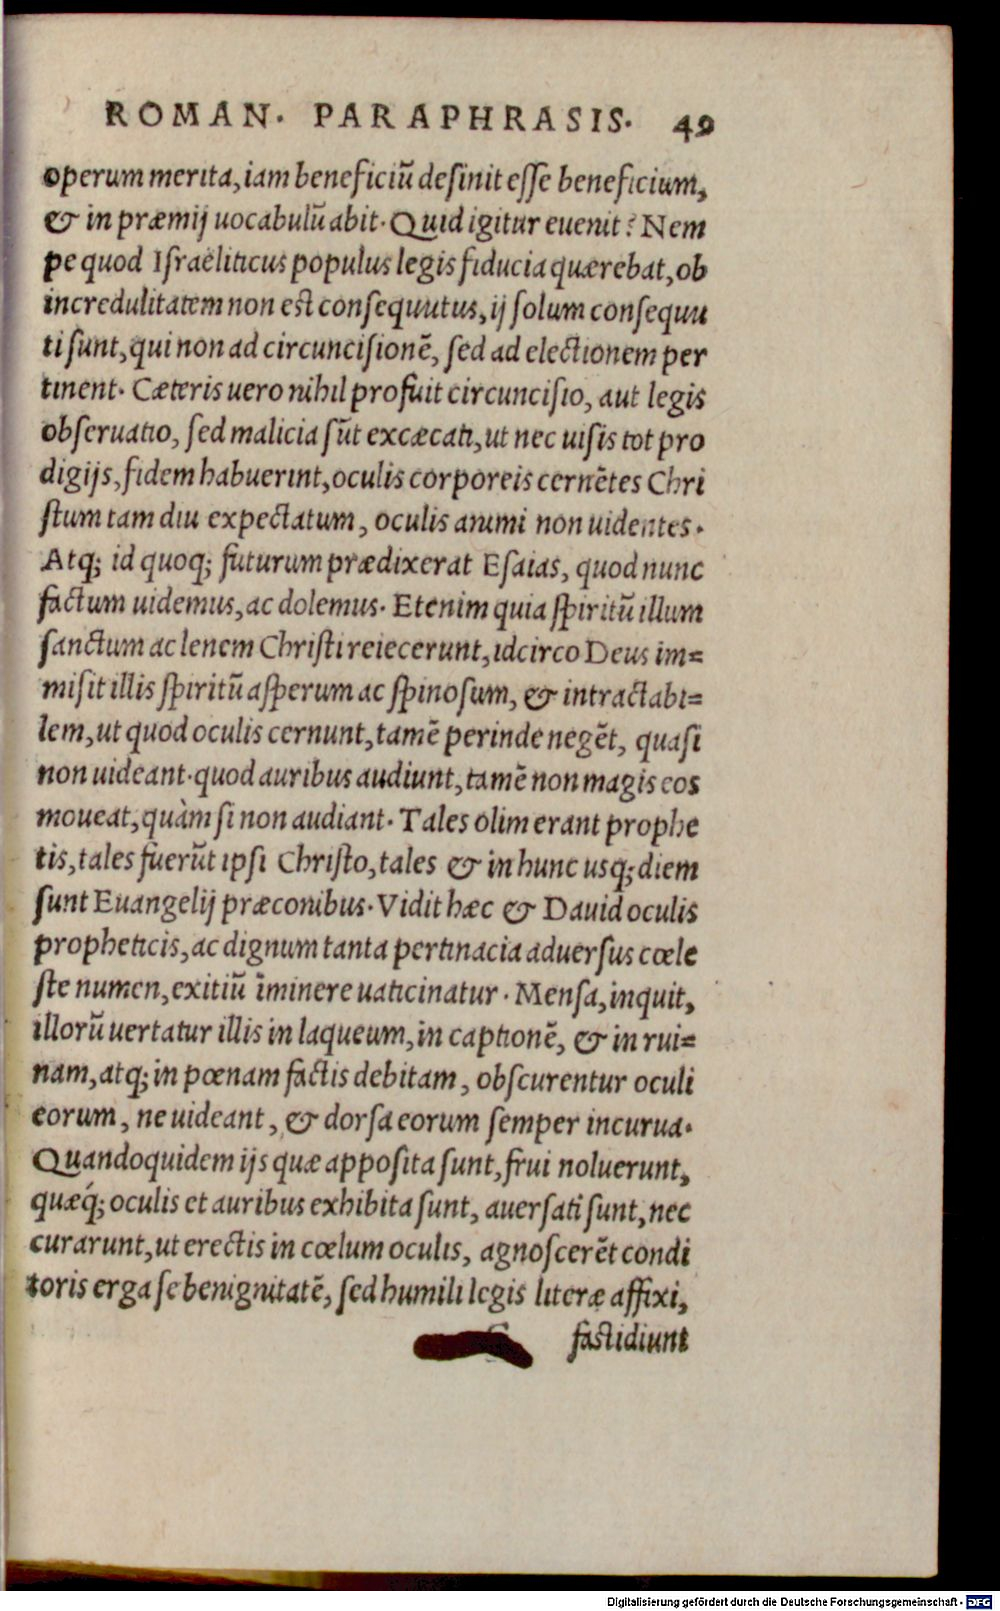 ROMAN. PARAPHRASIS. 49
operum merita, iam beneficiũ desinit esse beneficium,
& in præmij uocabulũ abit. Quid igitur euenit? Nem
pe quod Israëliticus populus legis fiducia quærebat, ob
incredulitatem non est consequutus, ij solum consequu
ti sunt, qui non ad circuncisionẽ, sed ad electionem per
tinent. Cæteris uero nihil profuit circuncisio, aut legis
obseruatio, sed malicia sũt excæcati, ut nec uisis tot pro
digijs, fidem habuerint, oculis corporeis cernẽtes Chri
stum tam diu expectatum, oculis animi non uidentes.
Atq; id quoq; futurum prædixerat Esaias, quod nunc
factum uidemus, ac dolemus. Etenim quia spiritũ illum
sanctum ac lenem Christi reiecerunt, idcirco Deus im=
misit illis spiritũ asperum ac spinosum, & intractabi=
lem, ut quod oculis cernunt, tamẽ perinde negẽt, quasi
non uideant. quod auribus audiunt, tamẽ non magis eos
moueat, quàm si non audiant. Tales olim erant prophe
tis, tales fuerũt ipsi Christo, tales & in hunc usq; diem
sunt Euangelij præconibus. Vidit hæc & Dauid oculis
propheticis, ac dignum tanta pertinacia aduersus cœle
ste numen, exitiũ ĩminere uaticinatur. Mensa, inquit,
illorũ uertatur illis in laqueum, in captionẽ, & in rui=
nam, atq; in pœnam factis debitam, obscurentur oculi
eorum, ne uideant, & dorsa eorum semper incurua.
Quandoquidem ijs quæ apposita sunt, frui noluerunt,
quæq́; oculis et auribus exhibita sunt, auersati sunt, nec
curarunt, ut erectis in cœlum oculis, agnoscerẽt condi
toris erga se benignitatẽ, sed humili legis literæ affixi,
fastidiunt
Digitalisierung gefördert durch die Deutsche Forschungsgemeinschaft - DFG